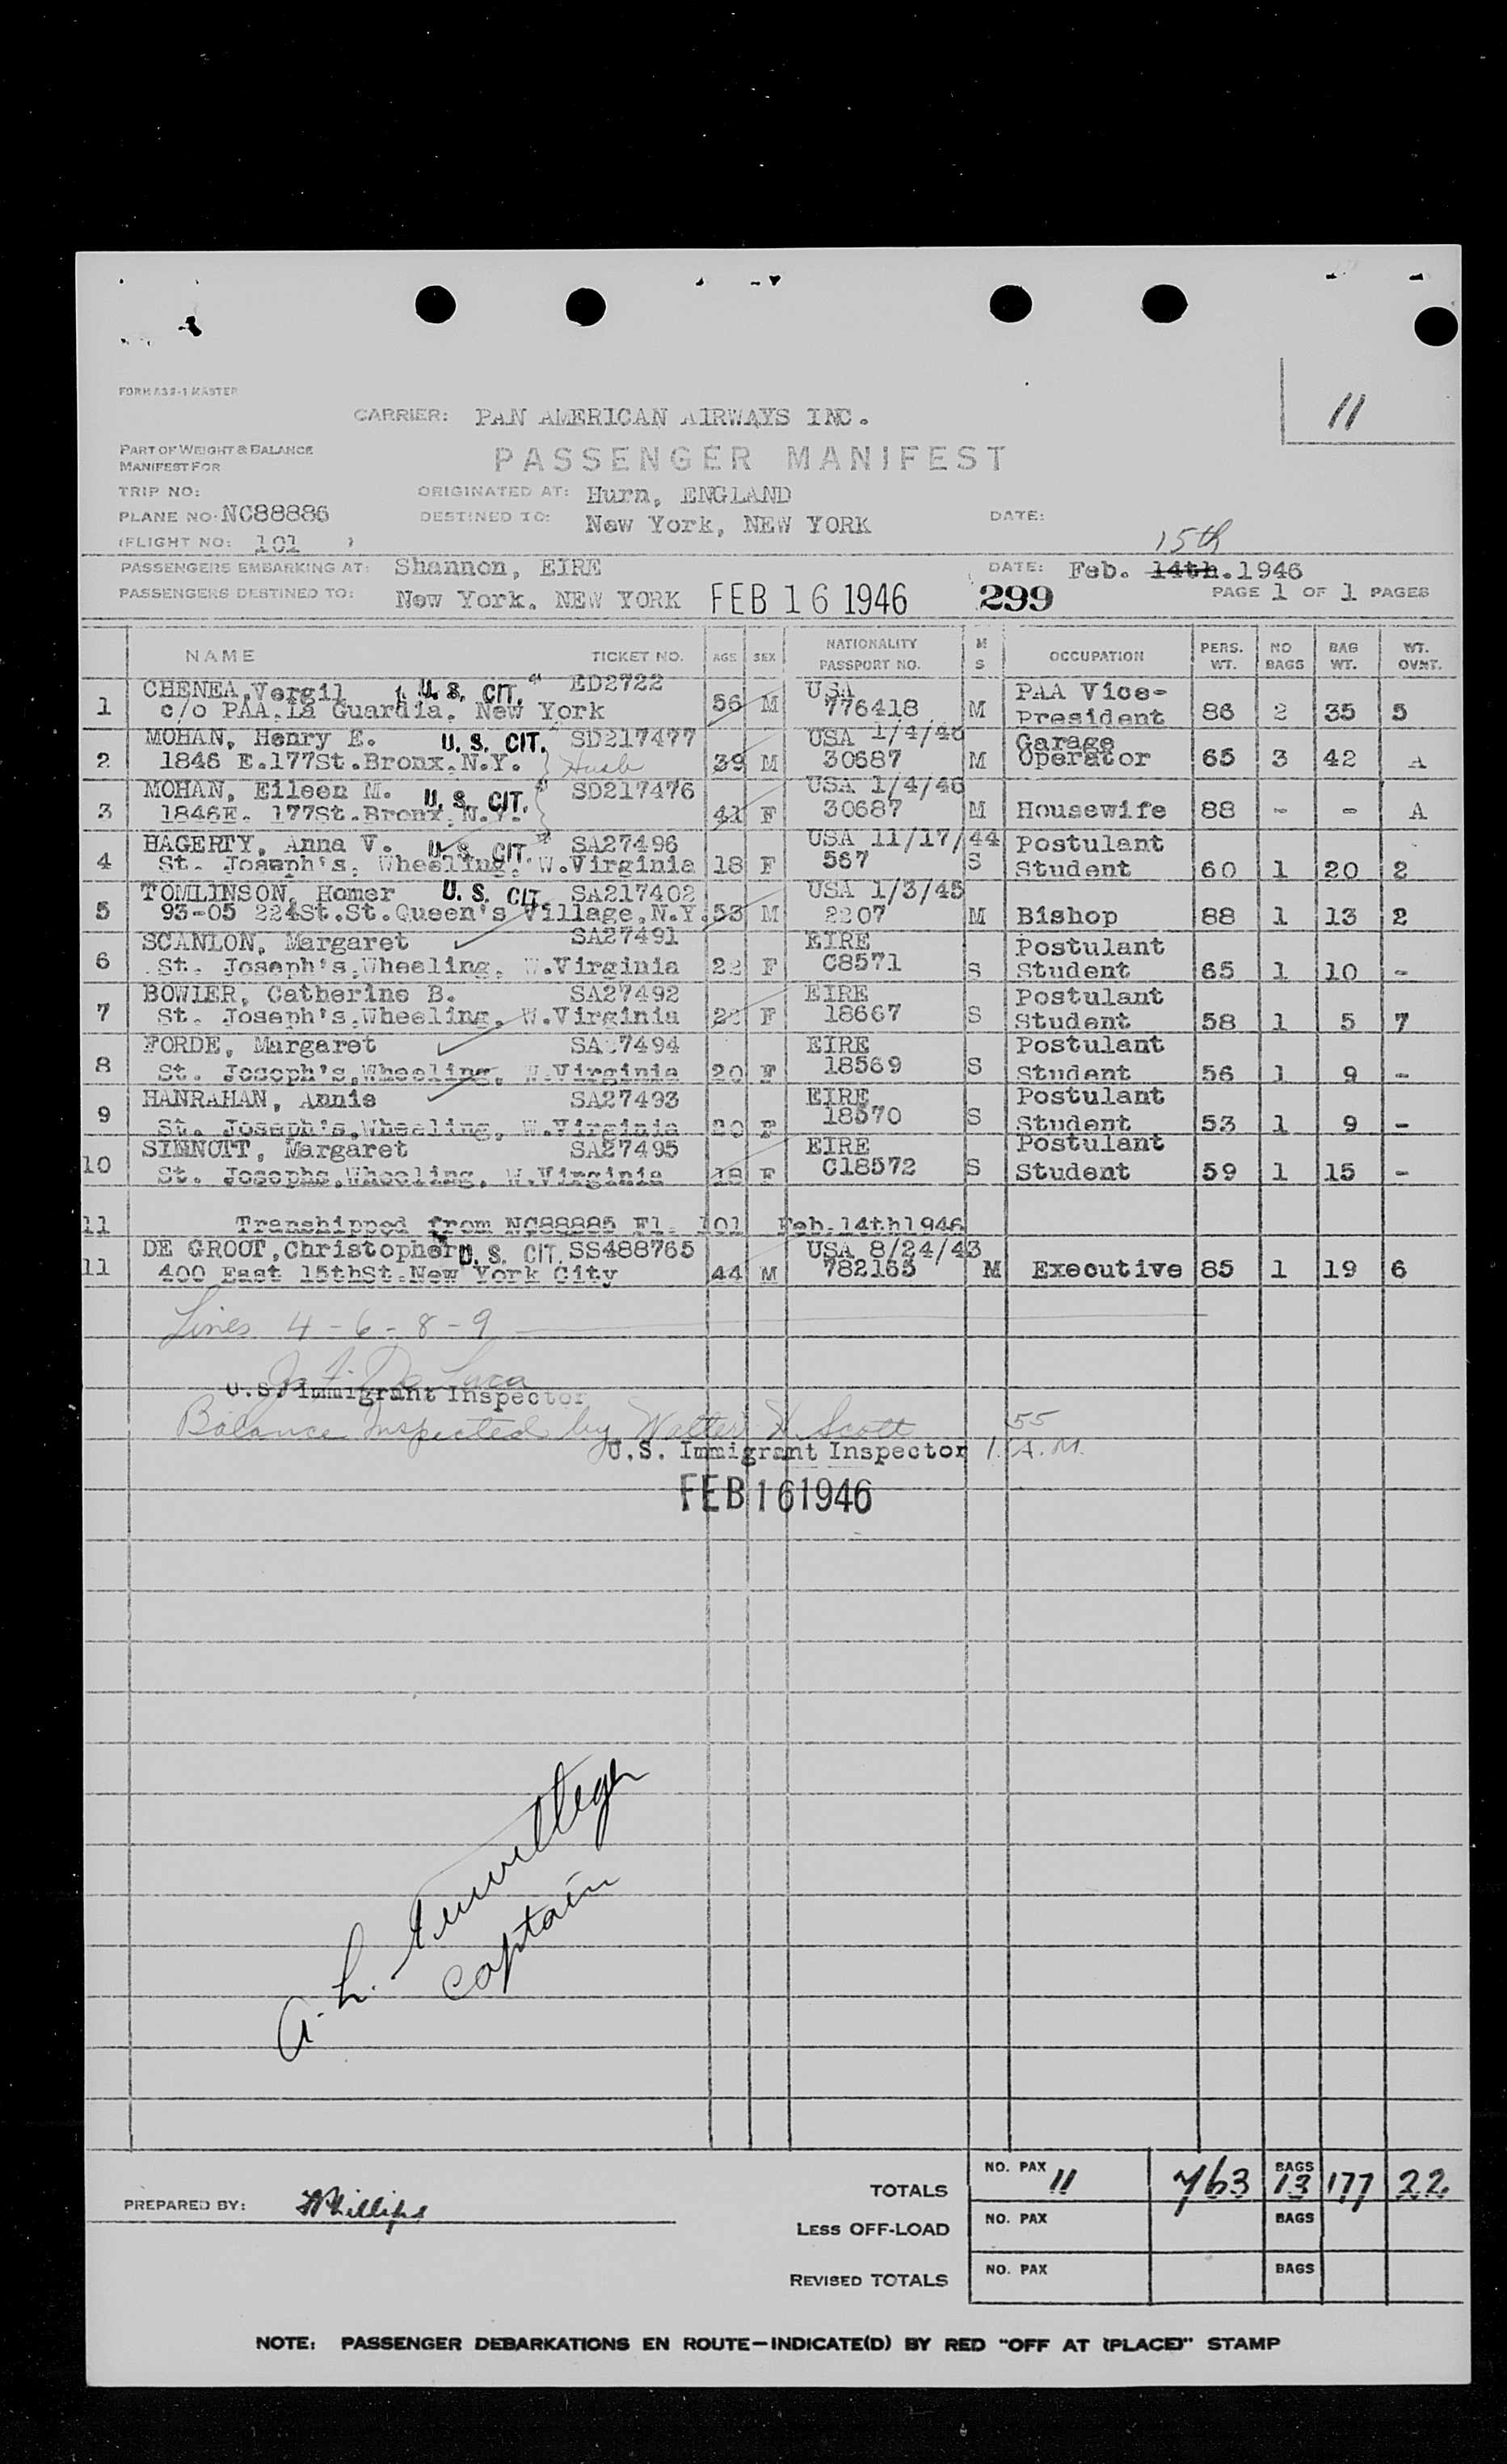 FORM ASS-1 MASTER
11
CARRIER: PAN AMERICAN AIRWAYS INC.
PART OF WEIGHT & BALANCE
MANIFEST FOR
PASSENGER MANIFEST
TRIP NO:
ORIGINATED AT: Hurn, ENGLAND
PLANE NO. NC88886
DESTINED TO: New York, NEW YORK
DATE:
(FLIGHT NO: 101 )
15th
PASSENGERS EMBARKING AT: Shannon, EIRE
DATE: Feb. 14th.1946
PASSENGERS DESTINED TO: New York. NEW YORK FEB 16 1946 299 PAGE 1 OF 1 PAGES
NAME TICKET NO. AGE SEX NATIONALITY PASSPORT NO. M S OCCUPATION PERS. WT. NO BAGS BAG WT. WT. OVNT.
1 CHENEA, Vergil U. S. CIT. ED2722 56 M USA M PAA Vice-
c/o PAA. La Guardia. New York 776418 President 86 2 35 5
2 MOHAN, Henry E. U. S. CIT. SD217477 USA 1/4/46 Garage
1846 E.177St.Bronx.N.Y. Husb 39 M 30687 M Operator 65 3 42 A
3 MOHAN, Eileen M. U. S. CIT. SD217476 USA 1/4/46
1846E. 177St.Bronx.N.Y. 41 F 30687 M Housewife 88 - - A
4 HAGERTY, Anna V. U. S. CIT. SA27496 USA 11/17/44 Postulant
St. Joseph's. Wheeling. W.Virginia 18 F 567 S Student 60 1 20 2
5 TOMLINSON, Homer U. S. CIT. SA217402 USA 1/3/45
93-05 224St.St.Queen's Village,N.Y. 53 M 2207 M Bishop 88 1 13 2
6 SCANLON, Margaret SA27491 EIRE Postulant
St. Joseph's.Wheeling, W.Virginia 22 F C8571 S Student 65 1 10 -
7 BOWLER, Catherine B. SA27492 EIRE Postulant
St. Joseph's.Wheeling, W.Virginia F 18667 S Student 58 1 5 7
8 FORDE, Margaret SA27494 EIRE Postulant
St. Joseph's,Wheeling, W.Virginia 20 F 18569 S Student 56 1 9 -
9 HANRAHAN, Annie SA27493 EIRE Postulant
St. Joseph's,Wheeling, W.Virginia 20 F 18570 S Student 53 1 9 -
10 SINNOTT, Margaret SA27495 EIRE Postulant
St. Josephs,Wheeling, W.Virginia 18 F C18572 S Student 59 1 15 -
11 Transhipped from NC88885 Fl. 101 Feb.14th1946
DE GROOT,Christopher U. S. CIT. SS488765 USA 8/24/43
11 400 East 15thSt.New York City 44 M 782165 M Executive 85 1 19 6
Lines 4-6-8-9
De Luca
U.S. Immigrant Inspector
Balance Inspected by Walter H. Scott 55
U.S. Immigrant Inspector 1. A.M.
FEB 16 1946
A. L.
Captain
TOTALS NO. PAX 11 763 BAGS 13 177 22
PREPARED BY: Phillips
LESS OFF-LOAD NO. PAX BAGS
REVISED TOTALS NO. PAX BAGS
NOTE: PASSENGER DEBARKATIONS EN ROUTE—INDICATE(D) BY RED "OFF AT (PLACE)" STAMP